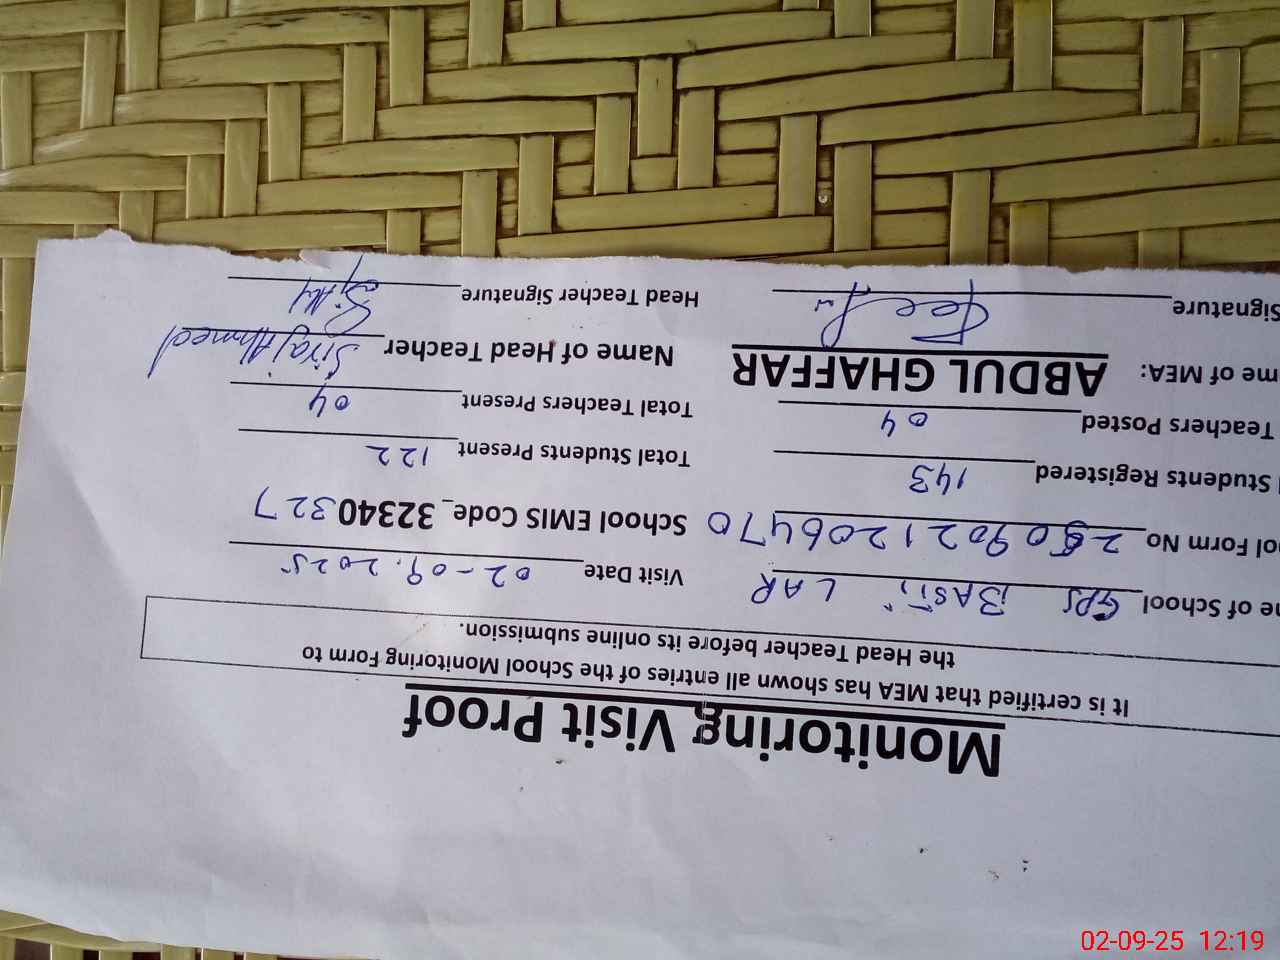 Monitoring Visit Proof
It is certified that MEA has shown all entries of the School Monitoring Form to
the Head Teacher before its online submission.
e of School GPS BASTI LAR Visit Date 02-09.2025
ol Form No 2509021206470 School EMIS Code_ 32340327
Students Registered 143 Total Students Present 122
Teachers Posted 04 Total Teachers Present 04
me of MEA: ABDUL GHAFFAR Name of Head Teacher Siraj Ahmed
Signature Head Teacher Signature
02-09-25 12:19